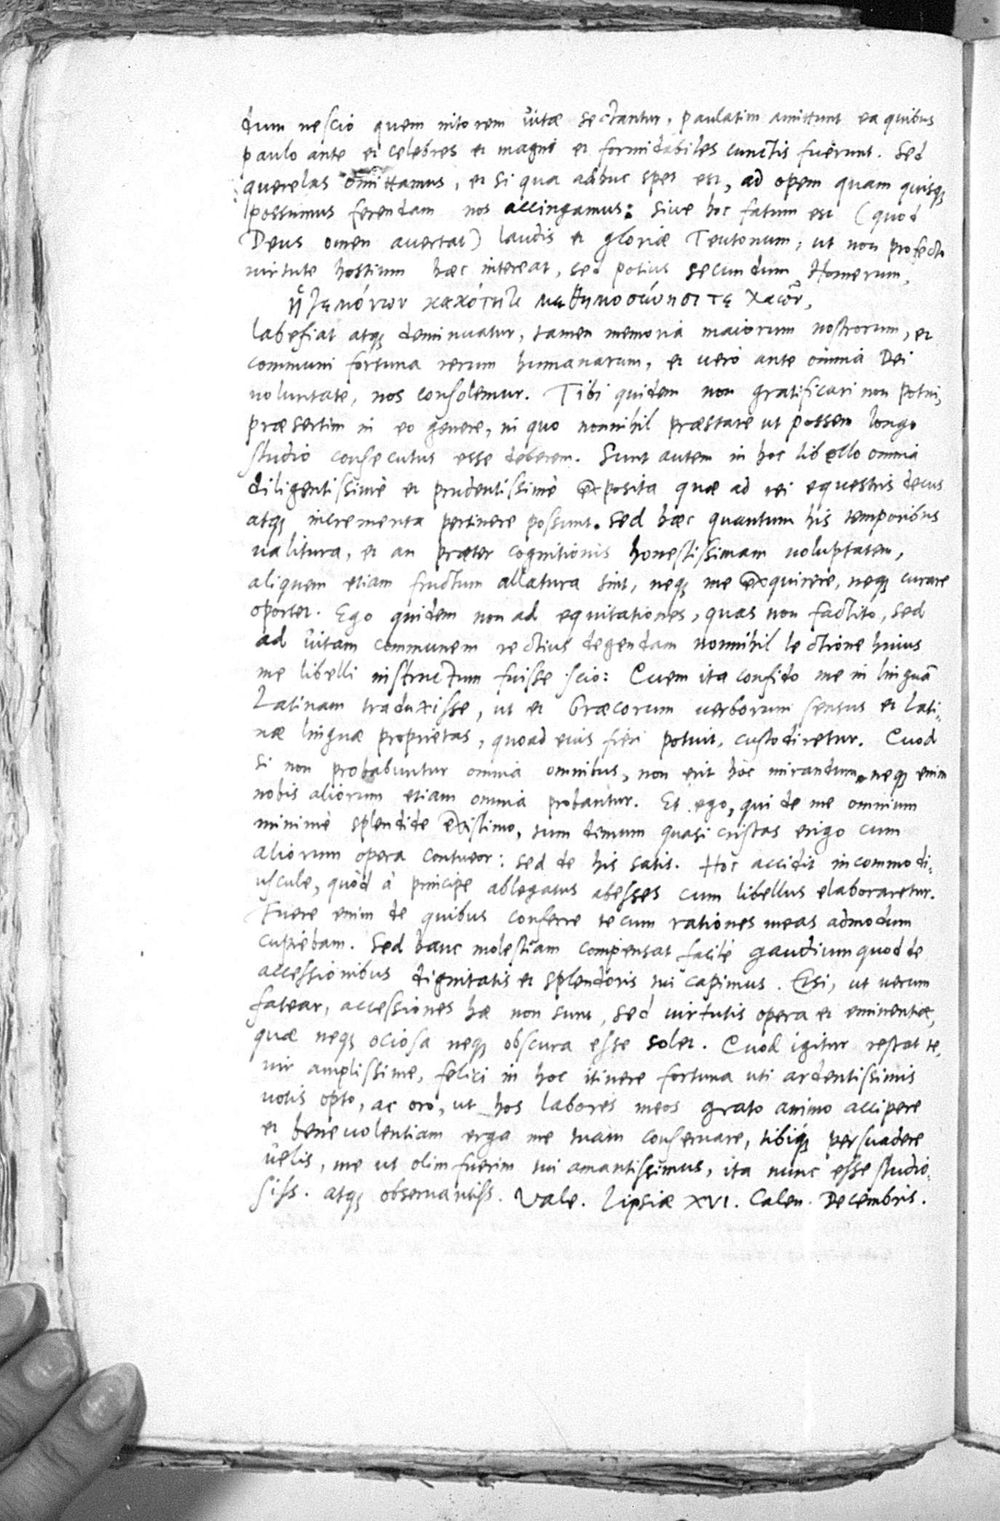 dum nescio quem nitorem vitæ sectantur, paulatim amittunt ea quibus
paulo ante et celebres et magni et formidabiles cunctis fuerunt. Sed
querelas omittamus, et si qua adhuc spes est, ad opem quam quisqȝ
possumus ferendam nos accingamus: Sive hoc fatum est (quod
Deus omen avertat) laudis et gloriæ Teutonum, ut non profecto
virtute hostium hæc intereat, sed potius secundum Homerum,
ἡγεμόνων κακότητι μεθημοσύνῃσί τε λαῶν,
labefiat atqȝ deminuatur, tamen memoria maiorum nostrorum, et
communi fortuna rerum humanarum, et vero ante omnia Dei
voluntate, nos consolemur. Tibi quidem non gratificari non potui,
præsertim in eo genere, in quo nonnihil præstare ut possem longo
studio consecutus esse deberem. Sunt autem in hoc libello omnia
diligentissime et prudentissime exposita quæ ad rei equestris decus
atqȝ incrementa pertinere possunt. Sed hæc quantum his temporibus
valitura, et an præter cognitionis honestissimam voluptatem,
aliquem etiam fructum allatura sint, neqȝ me exquirere, neqȝ curare
oportet. Ego quidem non ad equitationes, quas non factito, sed
ad vitam communem rectius degendam nonnihil lectione huius
me libelli instructum fuisse scio: Quem ita confido me in linguā
Latinam traduxisse, ut et Græcorum verborum sensus et lati-
næ linguæ proprietas, quoad eius fieri potuit, custodiretur. Quod
si non probabuntur omnia omnibus, non erit hoc mirandum, neqȝ enim
nobis aliorum etiam omnia probantur. Et ego, qui de me omnium
minime splendide existimo, tum demum quasi cristas erigo cum
aliorum opera contueor: sed de his satis. Hoc accidit incommodi-
uscule, quòd à principe ablegatus abesses cum libellus elaboraretur.
Fuere enim de quibus conferre tecum rationes meas admodum
cupiebam. Sed hanc molestiam compensat facile gaudium quod de
accessionibus dignitatis et splendoris tui capimus. Etsi, ut verum
fatear, accessiones hæ non sunt, sed virtutis opera et eminentiæ,
quæ neqȝ ociosa neqȝ obscura esse solet. Quod igitur restat te,
vir amplissime, felici in hoc itinere fortuna uti ardentissimis
votis opto, ac oro, ut hos labores meos grato animo accipere
et benevolentiam erga me tuam conservare, tibiqȝ persuadere
velis, me ut olim fuerim tui amantissimus, ita nunc esse studio-
siss. atqȝ observantiss. Vale. Lipsiæ XVI. Calen. Decembris.